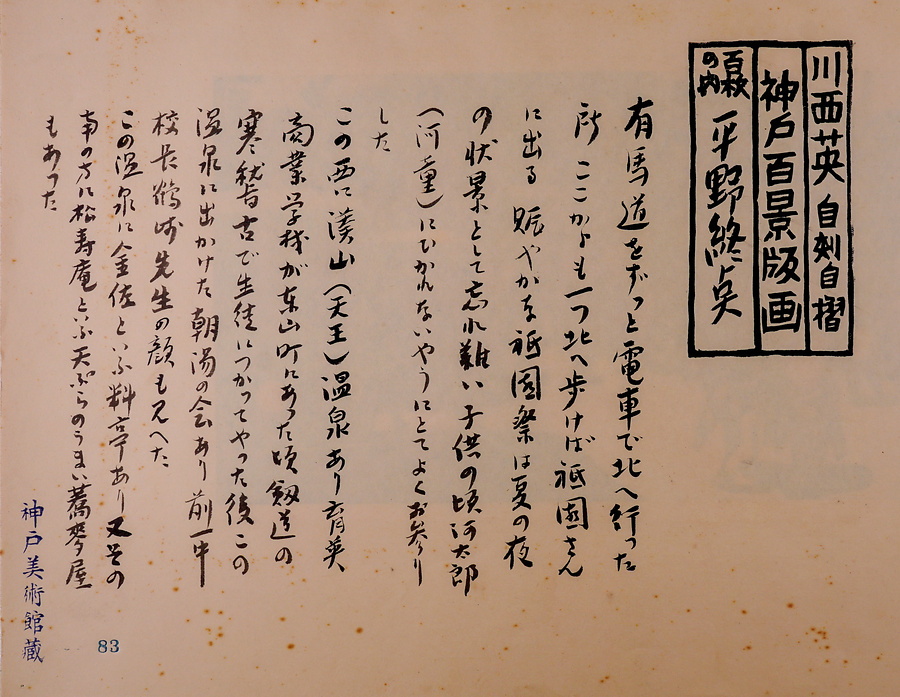 川西英 自刻自摺
神戸百景版画
百枚の内 平野終点
有馬道をずっと電車で北へ行った
所 ここからも一つ北へ歩けば祇園さん
に出る 賑やかな祇園祭は夏の夜
の状景として忘れ難い 子供の頃河太郎
(河童)にひかれないやうにとてよくお参り
した
この西に湊山(天王)温泉あり 育英
商業学校が東山町にあった頃 剱道の
寒稽古で生徒につかってやった後この
温泉に出かけた 朝湯の会あり 前一中
校長鶴崎先生の顔も見へた
この温泉に金佐といふ料亭あり 又そ の
南の方に松寿庵といふ天ぷらのうまい蕎麥屋
もあった
神戸美術館蔵
83